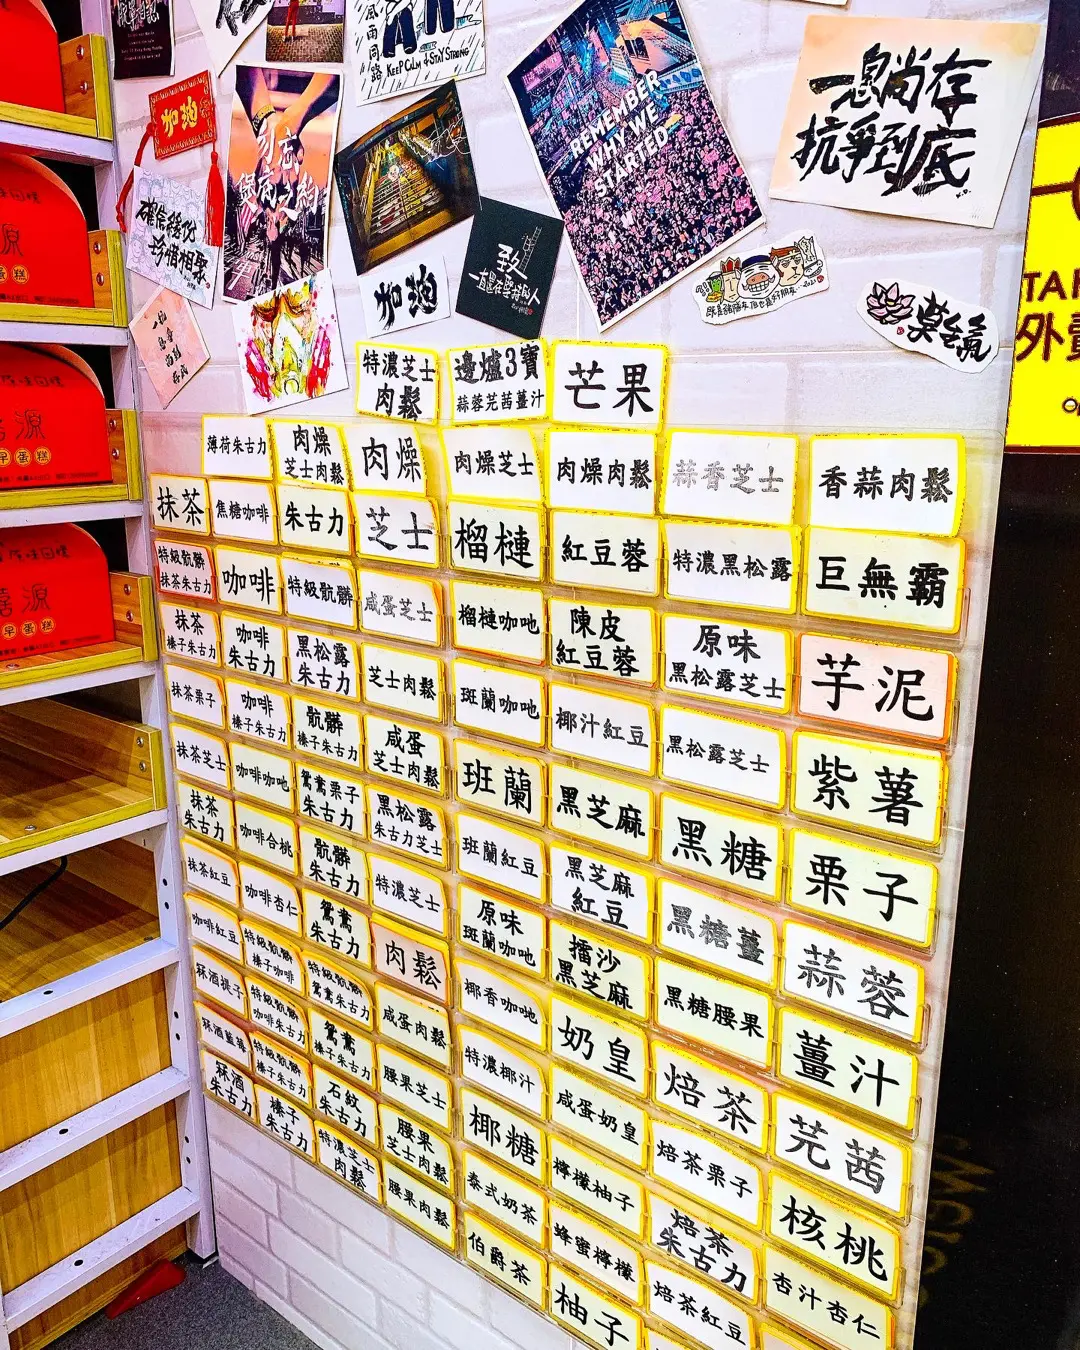 風雨同路
KEEP CALM & STAY STRONG
加油
勿忘
煲底之約
REMEMBER
WHY WE
STARTED
一息尚存
抗爭到底
珍惜相聚
加油
致
外賣
特濃芝士
肉鬆
邊爐3寶
蒜蓉芫茜薑汁
芒果
薄荷朱古力
肉燥
芝士肉鬆
肉燥
肉燥芝士
肉燥肉鬆
蒜香芝士
香蒜肉鬆
抹茶
焦糖咖啡
朱古力
芝士
榴槤
紅豆蓉
特濃黑松露
巨無霸
特級骯髒
抹茶朱古力
咖啡
特級骯髒
咸蛋芝士
榴槤咖吔
陳皮
紅豆蓉
原味
黑松露芝士
芋泥
抹茶
榛子朱古力
咖啡
朱古力
黑松露
朱古力
芝士肉鬆
斑蘭咖吔
椰汁紅豆
黑松露芝士
紫薯
抹茶栗子
咖啡
榛子朱古力
骯髒
榛子朱古力
咸蛋
芝士肉鬆
班蘭
黑芝麻
黑糖
栗子
抹茶芝士
咖啡咖吔
鴛鴦栗子
朱古力
黑松露
朱古力芝士
班蘭紅豆
黑芝麻
紅豆
黑糖薑
蒜蓉
抹茶
朱古力
咖啡合桃
骯髒
朱古力
特濃芝士
原味
斑蘭咖吔
擂沙
黑芝麻
黑糖腰果
薑汁
抹茶紅豆
咖啡杏仁
鴛鴦
朱古力
肉鬆
椰香咖吔
奶皇
焙茶
芫茜
咖啡紅豆
特級骯髒
榛子咖啡
特級骯髒
鴛鴦朱古力
咸蛋肉鬆
特濃椰汁
咸蛋奶皇
焙茶栗子
核桃
冧酒提子
特級骯髒
咖啡朱古力
鴛鴦
榛子朱古力
腰果芝士
椰糖
檸檬柚子
焙茶
朱古力
杏汁杏仁
冧酒藍莓
特級骯髒
榛子朱古力
石紋
朱古力
腰果
芝士肉鬆
泰式奶茶
蜂蜜檸檬
焙茶紅豆
冧酒
朱古力
榛子
朱古力
特濃芝士
肉鬆
腰果肉鬆
伯爵茶
柚子